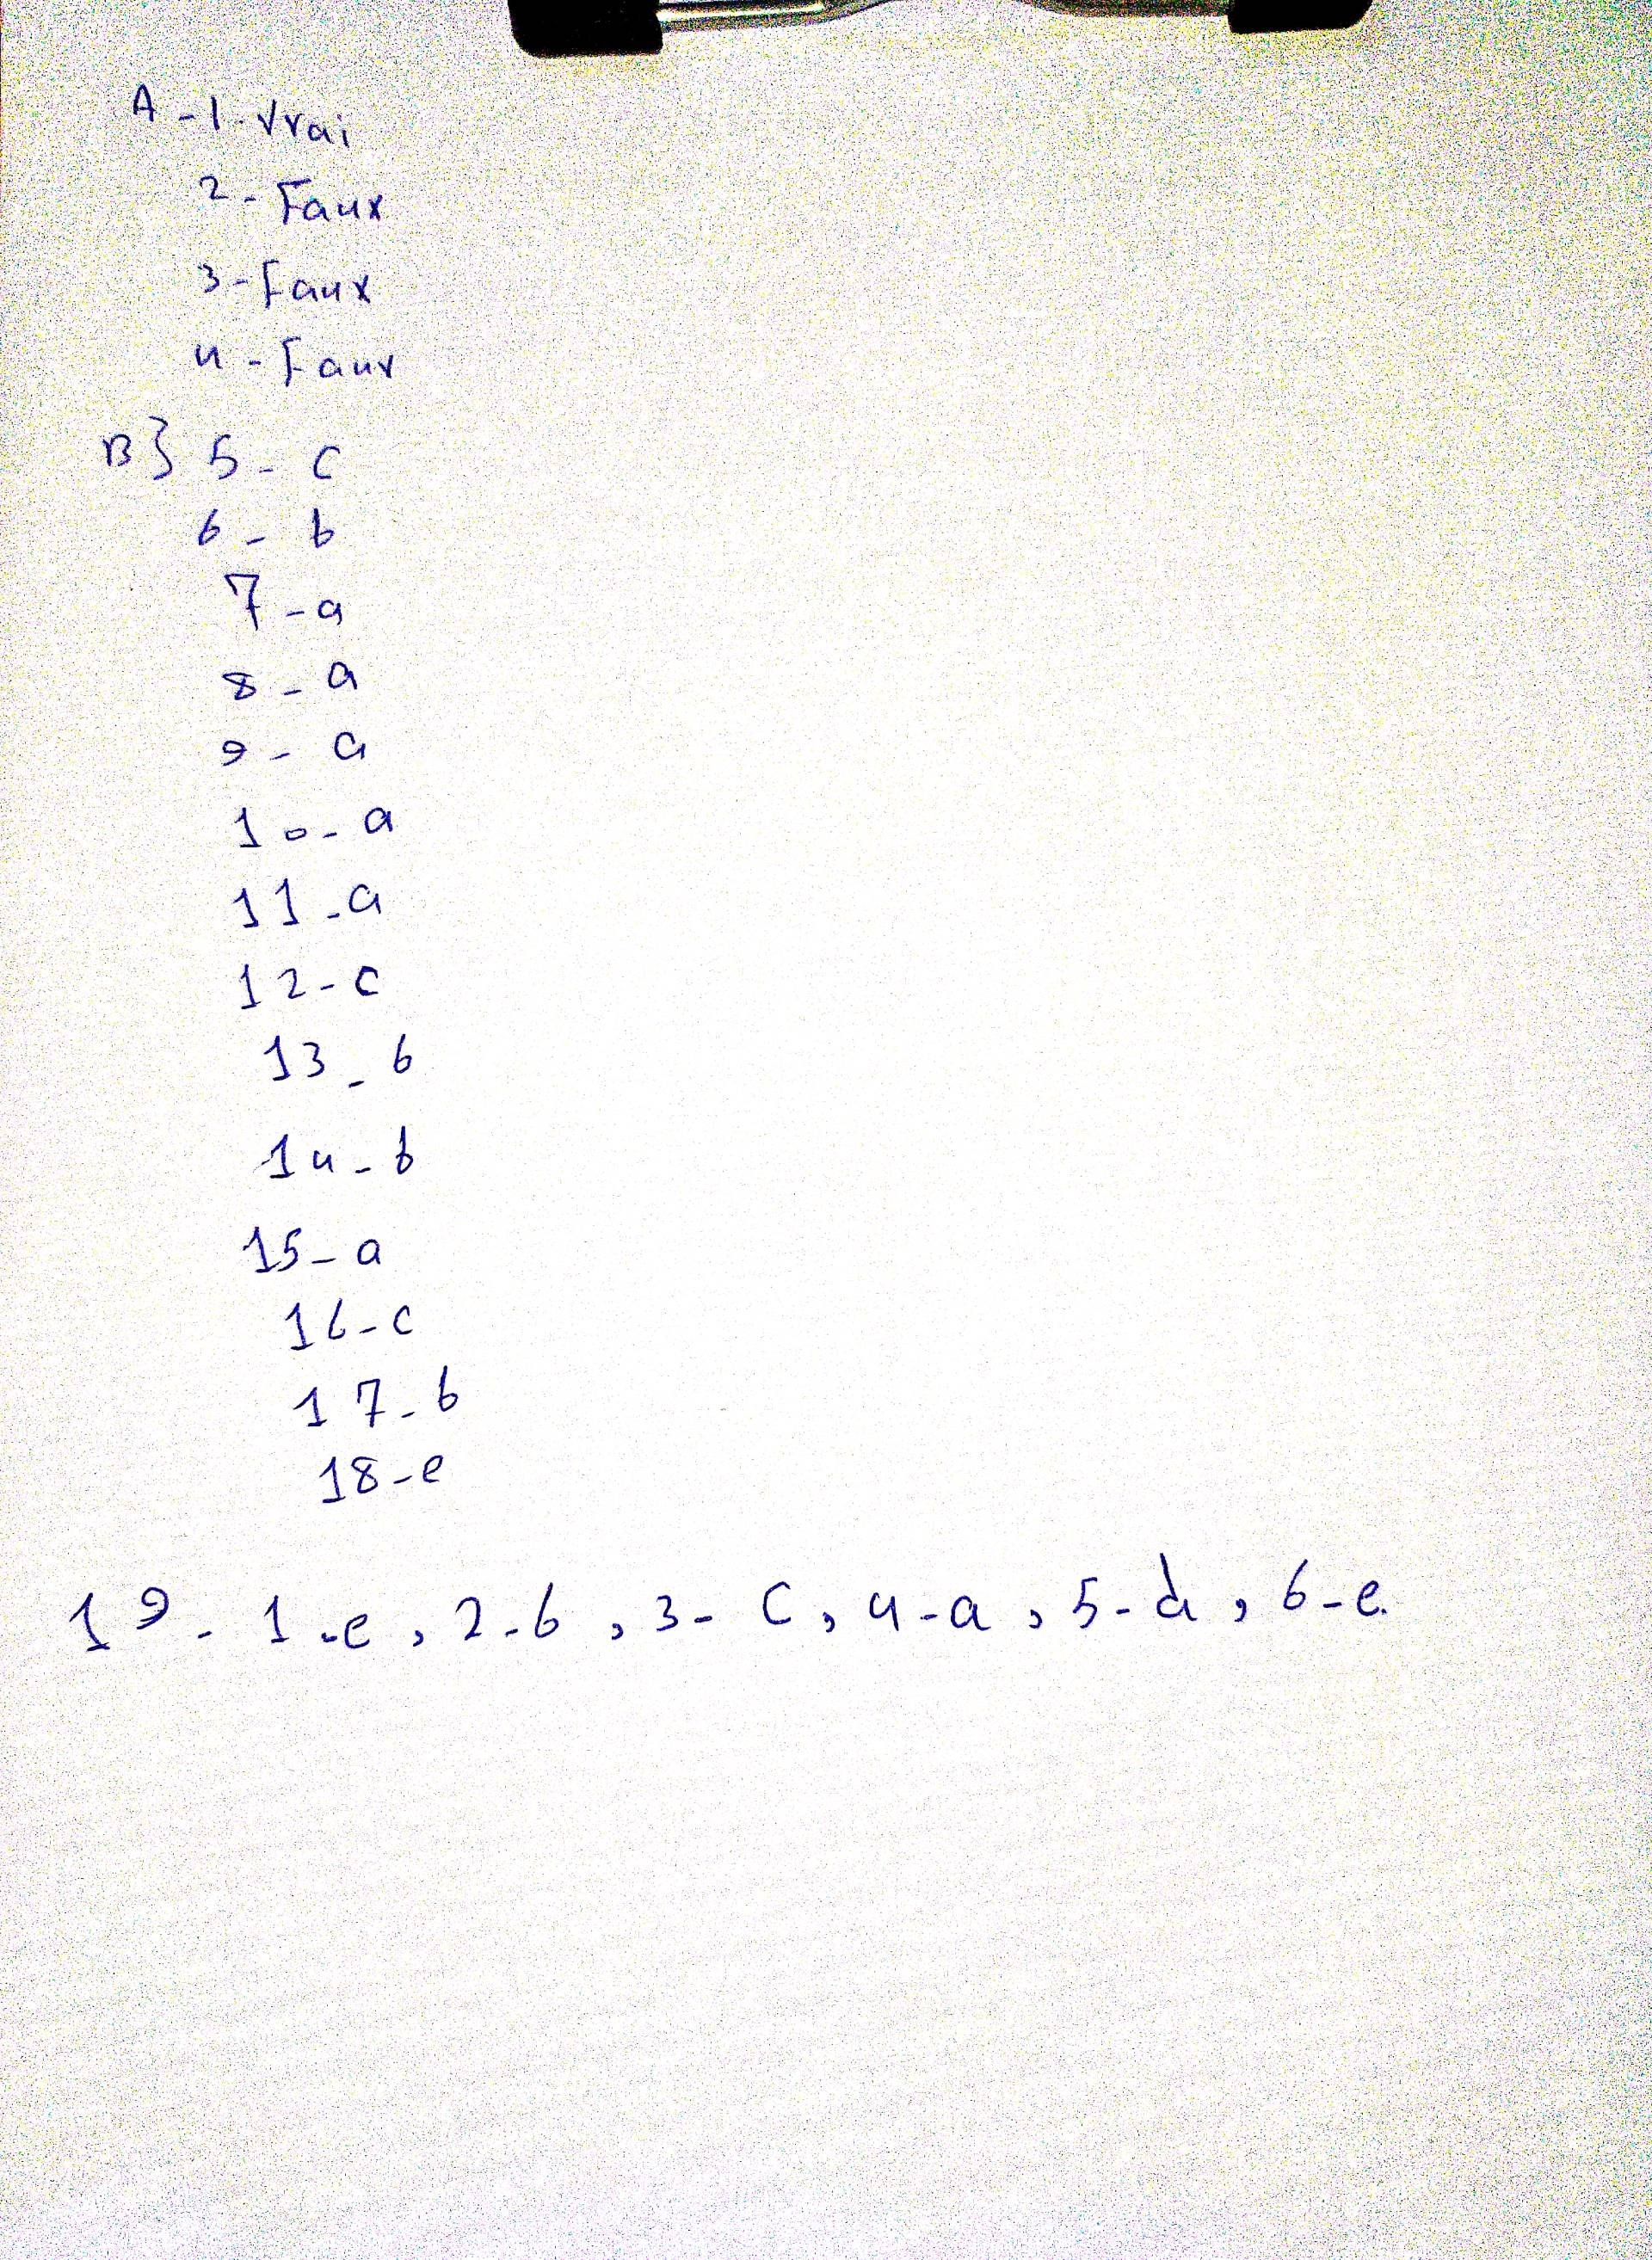 A - 1 - Vrai
2 - Faux
3 - Faux
4 - Faux
B} 5 - c
6 - b
7 - a
8 - a
9 - a
10 - a
11 - a
12 - c
13 - b
14 - b
15 - a
16 - c
17 - b
18 - e
19 - 1 - e , 2 - b , 3 - C , 4 - a , 5 - d , 6 - e.